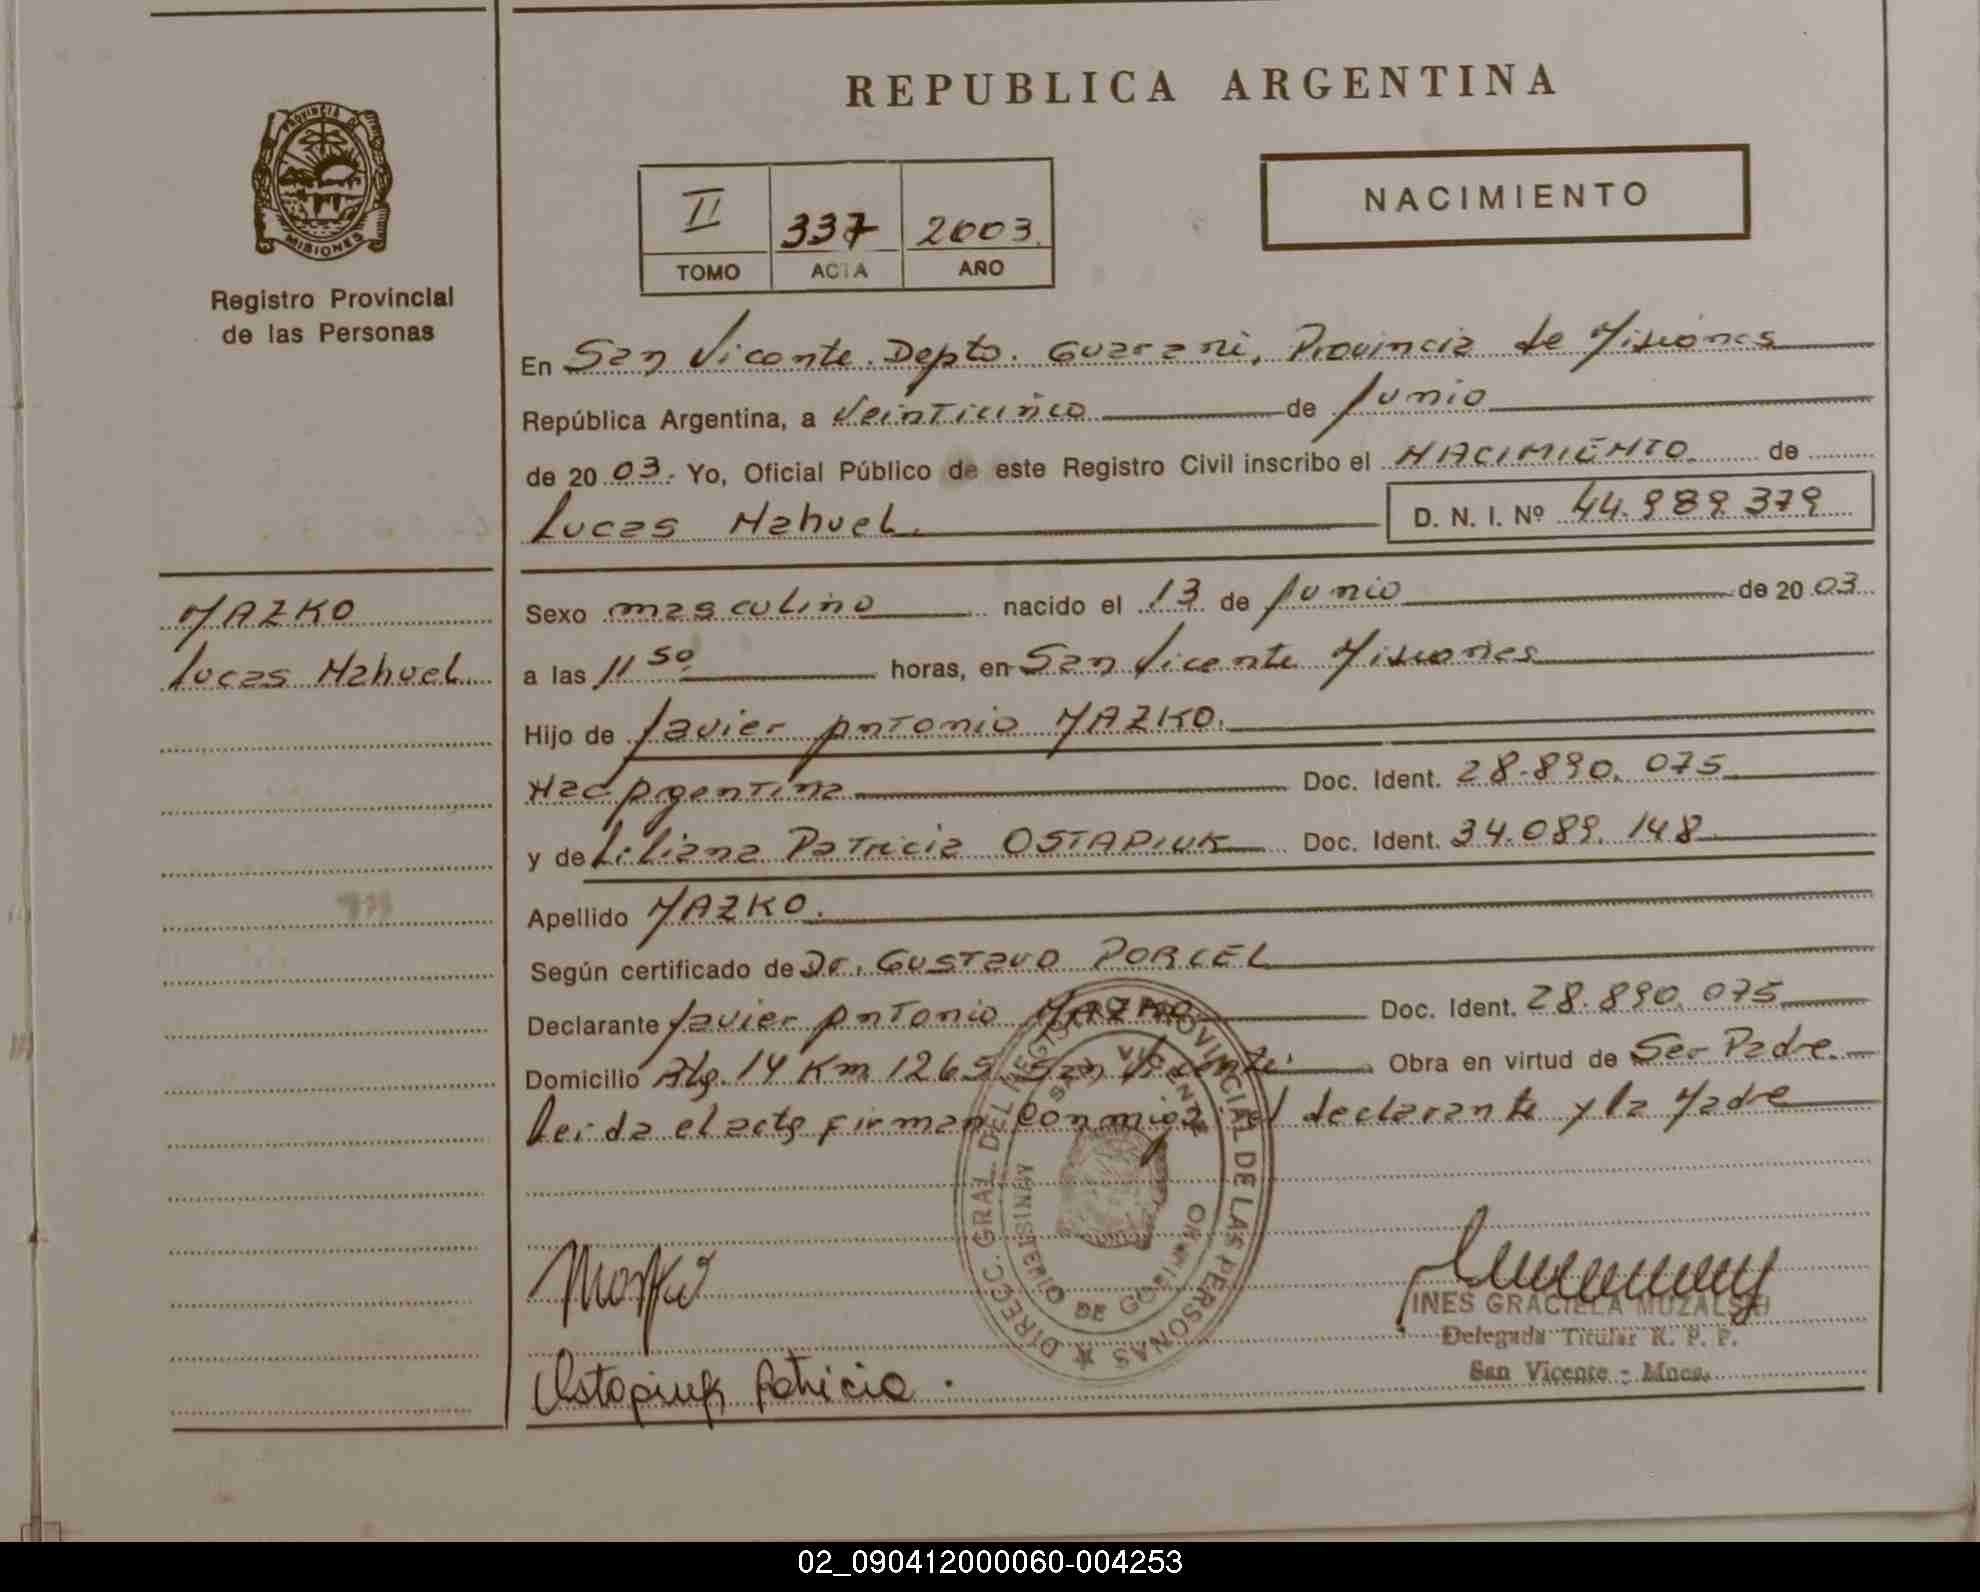 REPUBLICA ARGENTINA
PROVINCIA D
MISIONES
Registro Provincial
de las Personas
II 337 2003.
TOMO ACTA AÑO
NACIMIENTO
En San Vicente. Depto. Guarani, Provincia de Misiones
República Argentina, a Veinticinco de Junio
de 20 03. Yo, Oficial Público de este Registro Civil inscribo el NACIMIENTO. de
Lucas Nahuel. D. N. I. Nº 44.989.379
MAZKO
Lucas Nahuel
Sexo masculino nacido el 13 de Junio de 20 03.
a las 11 50 horas, en San Vicente Misiones
Hijo de Javier Antonio MAZKO.
Nac Argentina Doc. Ident. 28.890.075
y de Liliana Patricia OSTAPIUK Doc. Ident. 34.089.148
Apellido MAZKO.
Según certificado de Dr. Gustavo PORCEL
Declarante Javier Antonio MAZKO Doc. Ident. 28.890.075
Domicilio 14 Km 1265 San Vicente. Obra en virtud de Ser Padre.
Leida el acta firman conmigo el declarante y la Madre
DIRECC. GRAL. DEL REGISTRO PROVINCIAL DE LAS PERSONAS
SAN VICENTE
MINISTERIO DE GOBIERNO
Ostapiuk Patricia.
INES GRACIELA MUZALSKI
Delegada Titular R. P. P.
San Vicente - Mnes.
02_090412000060-004253